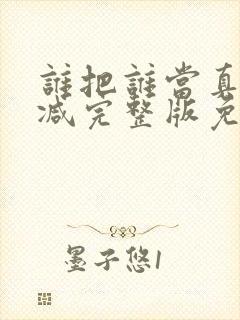 誰把誰當真
减完整版免
墨子悠1